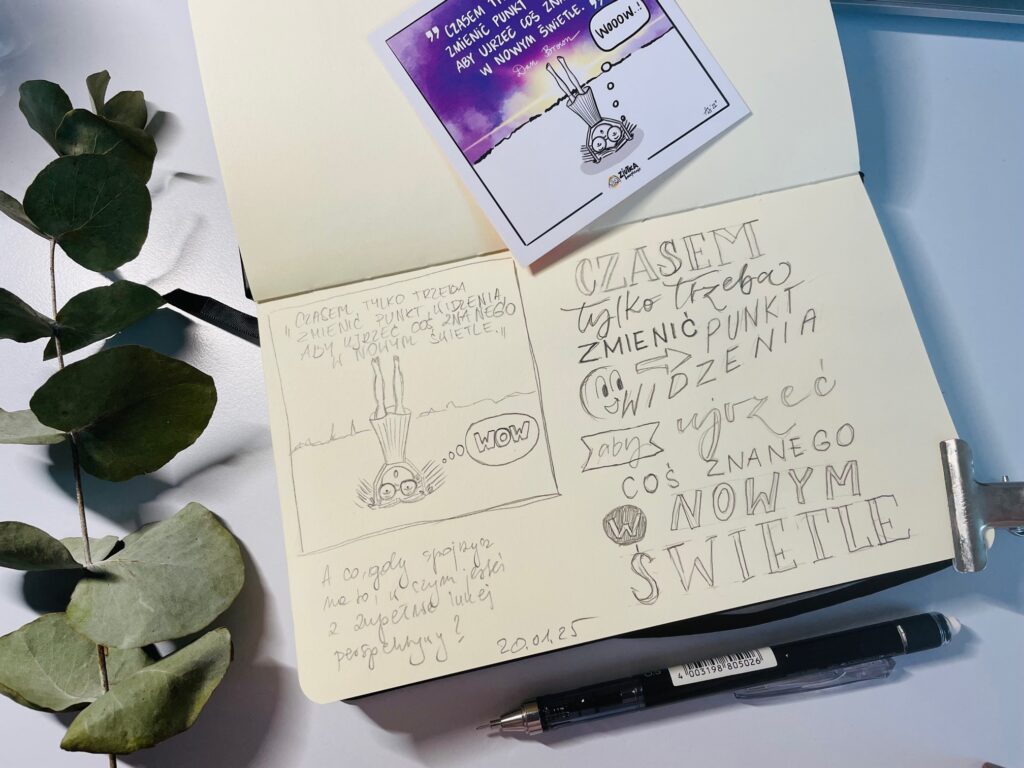 „ CZASEM
ZMIENIĆ PUNKT
ABY UJRZEĆ COŚ
W NOWYM ŚWIETLE. ”
Dan Brown
WOOOW..!
ZIUTKA
CZASEM TYLKO TRZEBA
„ZMIENIĆ PUNKT WIDZENIA
ABY UJRZEĆ COŚ ZNANEGO
W NOWYM ŚWIETLE.„
WOW
A co, gdy spojrzysz
na to, w czym jesteś
z zupełnie innej
perspektywy?
20.01.25
CZASEM
tylko trzeba
ZMIENIĆ PUNKT
WIDZENIA
aby ujrzeć
COŚ ZNANEGO
W NOWYM
ŚWIETLE
4 003198 805026